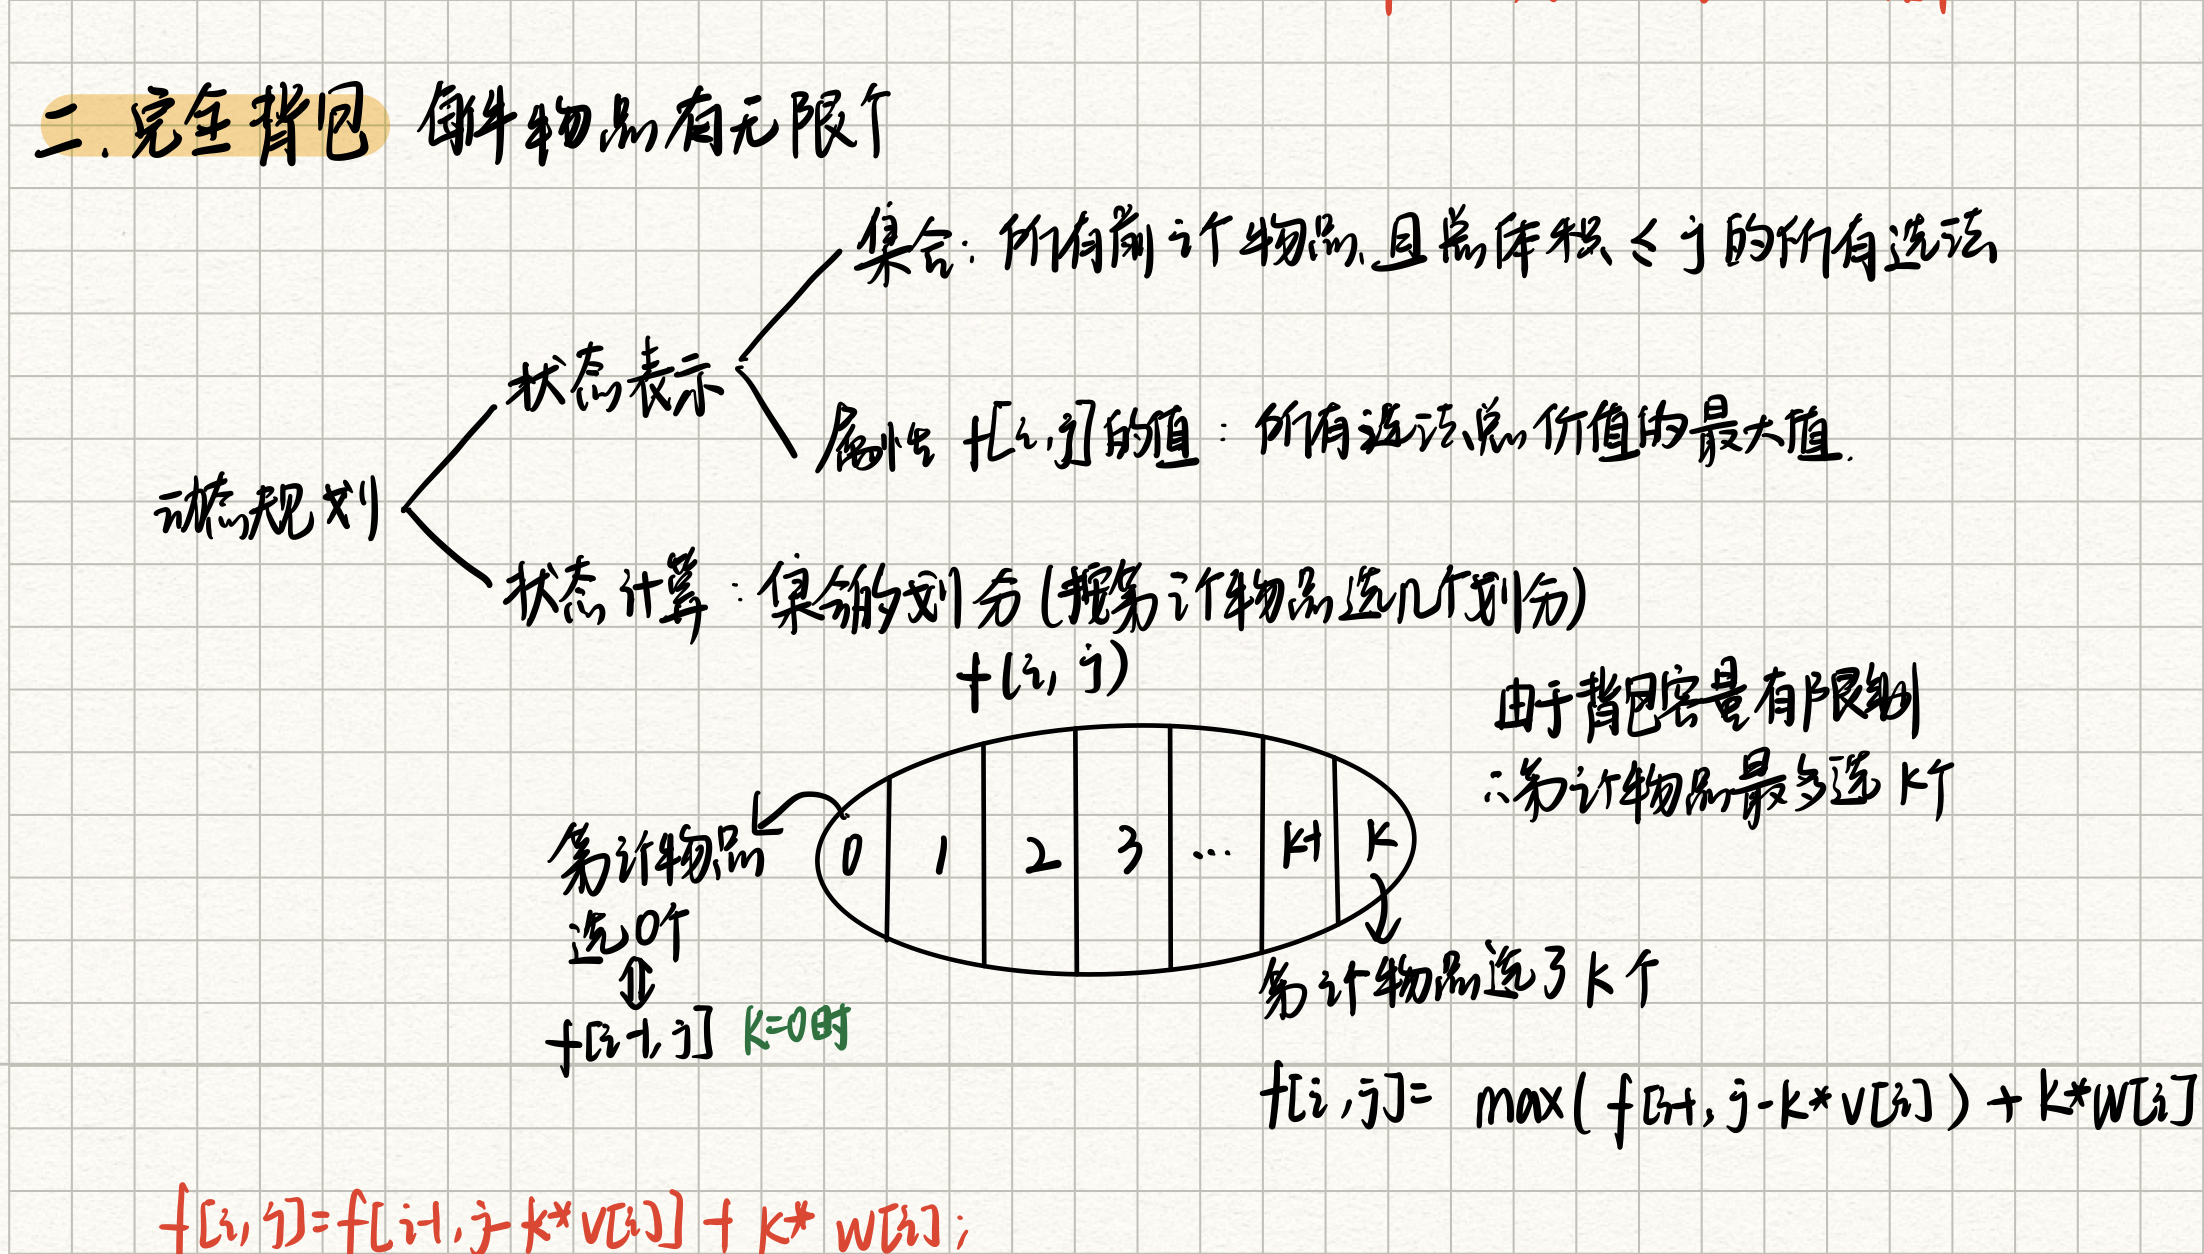 二.完全背包 每件物品有无限个
集合:所有前i个物品,且总体积≤j的所有选法
状态表示
属性 f[i,j]的值:所有选法总价值的最大值.
动态规划
状态计算:集合的划分(按第i个物品选几个划分)
f(i,j)
由于背包容量有限制
∴第i个物品最多选k个
第i个物品
选0个
0 1 2 3 ... k-1 k
第i个物品选了k个
f[i-1,j] k=0时
f[i,j]= max(f[i-1,j-k*v[i])+k*w[i]
f[i,j]=f[i-1,j-k*v[i]]+k*w[i];